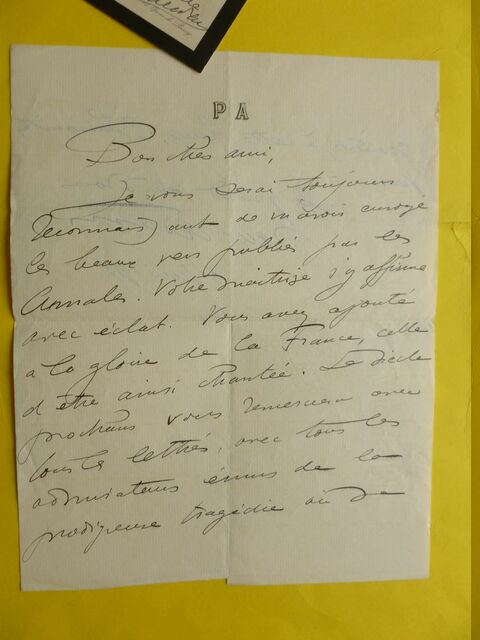 P A
Bon cher ami,
Je vous serai toujours
reconnaissant de m'avoir envoyé
les beaux vers publiés par les
Annales. Votre maîtrise s'y affirme
avec éclat. Vous avez ajouté
a la gloire de la France, celle
d'être ainsi chantée. Le siècle
prochain vous remerciera avec
tous les lettrés, avec tous les
admirateurs émus de la
prodigieuse tragédie où se